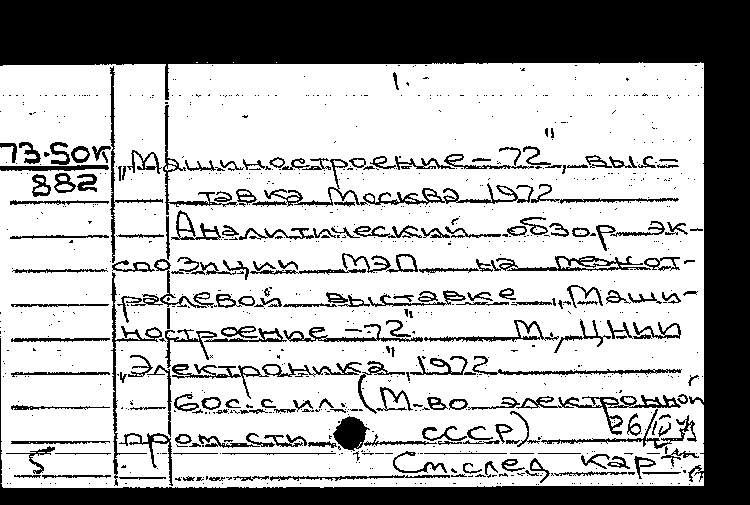 1.
73-50к
882
„Машиностроение-72", выс-
тавка Москва 1972
Аналитический обзор эк-
спозиции МЭП на межот-
раслевой выставке „Маши-
ностроение-72". М., ЦНИИ
„Электроника", 1972.
60с. с ил. (М-во электронной
пром-сти СССР).
5 См. след. кар